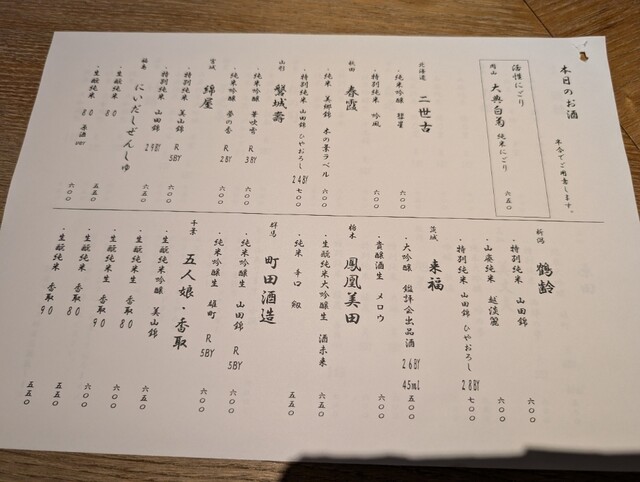 本日のお酒
半合でご用意します。
活性にごり
岡山 大典白菊 純米にごり 六五〇
北海道 二世古
・純米吟醸 彗星 六〇〇
・特別純米 吟風 六〇〇
秋田 春霞
・純米 美郷錦 木の葉ラベル 六〇〇
・特別純米 山田錦 ひやおろし 24BY 七〇〇
山形 磐城壽
・純米吟醸 華吹雪 R3BY 六〇〇
・純米吟醸 夢の香 R2BY 六〇〇
宮城 綿屋
・特別純米 美山錦 R5BY 六〇〇
・特別純米 山田錦 29BY 六五〇
福島 にいだしぜんしゅ
・生酛純米 80 五五〇
・生酛純米 80 原酒 六〇〇
新潟 鶴齢
・特別純米 山田錦 六〇〇
・山廃純米 越淡麗 六〇〇
・特別純米 山田錦 ひやおろし 28BY 七〇〇
茨城 来福
・大吟醸 鑑評会出品酒 26BY 45ml 五〇〇
・貴醸酒生 メロウ 六〇〇
栃木 鳳凰美田
・生酛純米大吟醸生 酒未来 六五〇
・純米 辛口 剱 五五〇
群馬 町田酒造
・純米吟醸生 山田錦 R5BY 六〇〇
・純米吟醸生 雄町 R5BY 六〇〇
千葉 五人娘・香取
・生酛純米吟醸 美山錦 六五〇
・生酛純米生 香取80 六〇〇
・生酛純米生 香取90 六〇〇
・生酛純米 香取80 五五〇
・生酛純米 香取90 五五〇